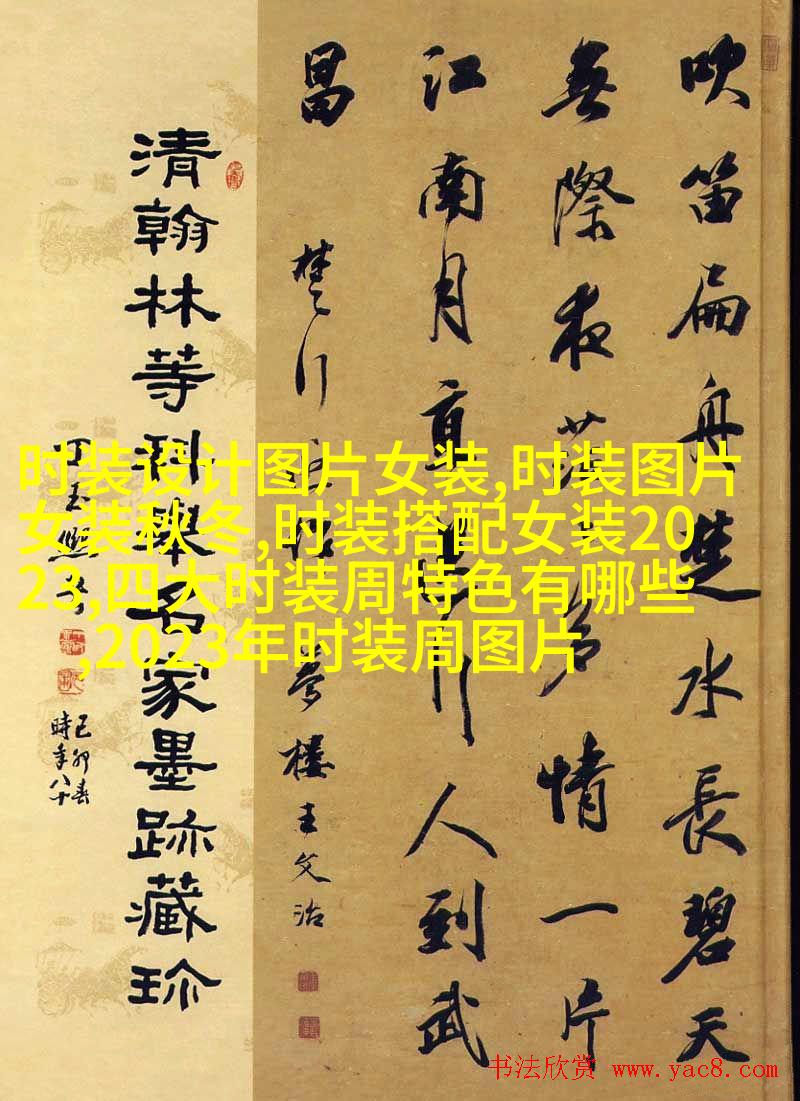 吹笛扁舟楚水長碧天
無際夜茫多情一片
江南月直行人到武
昌
楚行
夢樓王文治
清翰林等科舉名家墨跡藏珍
己卯春
時年八十
时装设计图片女装,时装图片
女装秋冬,时装搭配女装20
23,四大时装周特色有哪些
,2023年时装周图片
书法欣赏 www.yac8.com